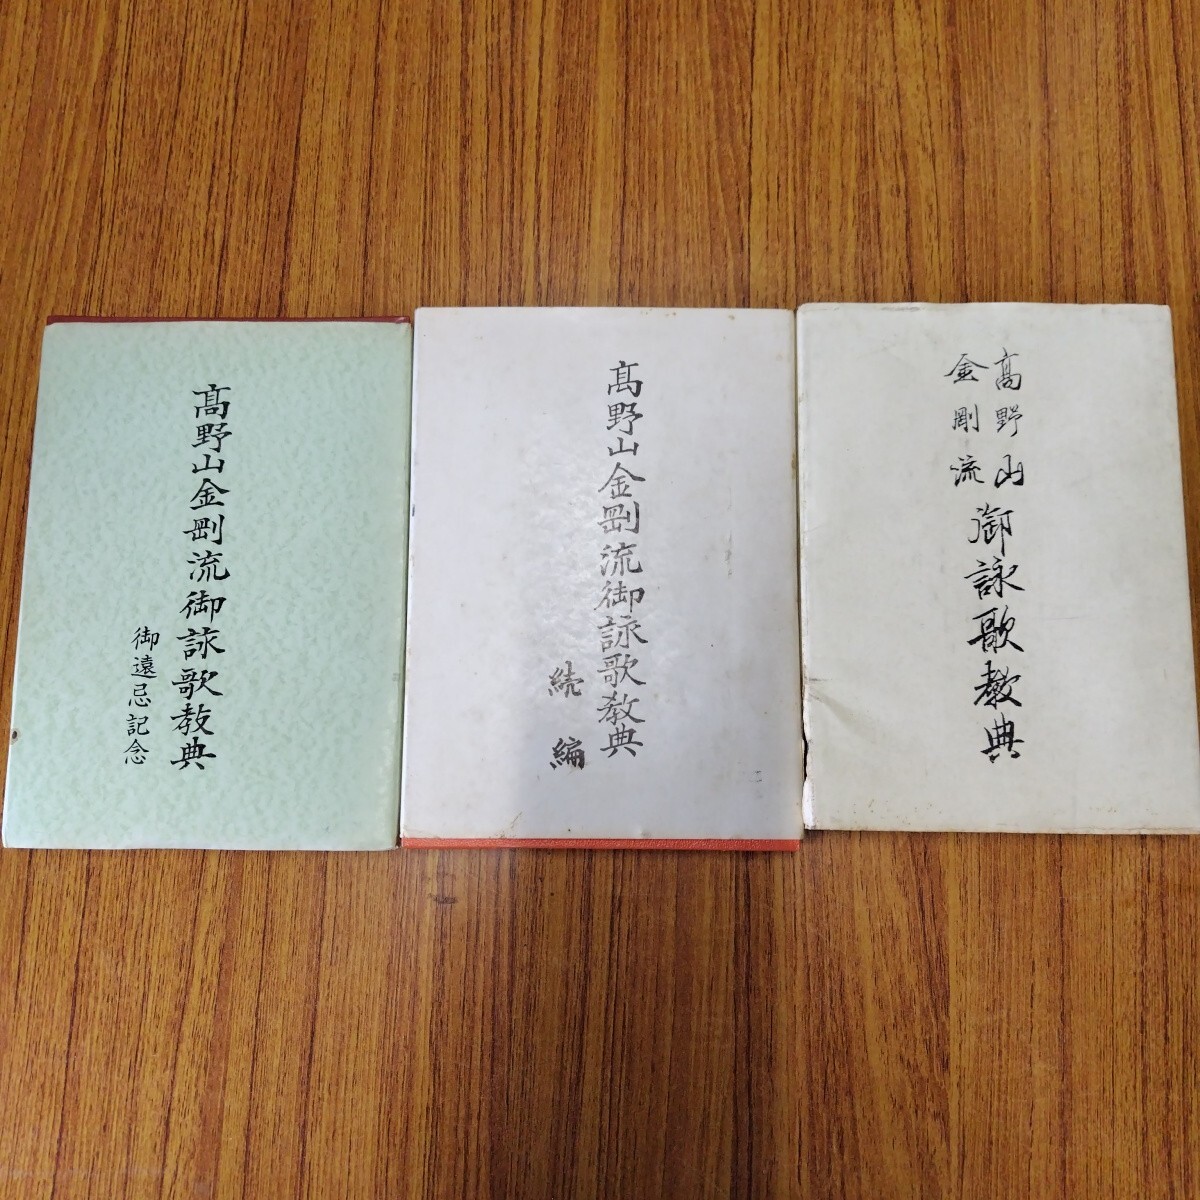 髙野山金剛流御詠歌教典
御遠忌記念
髙野山金剛流御詠歌教典
続編
髙野山
金剛流
御詠歌教典